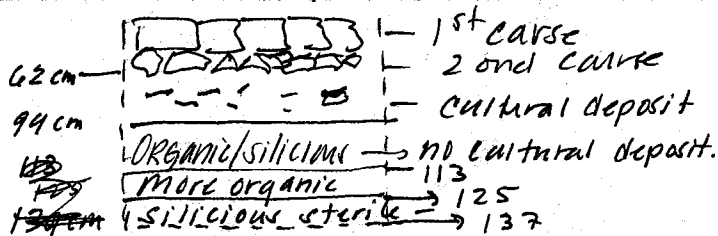 1st carse
62 cm 2 ond caurse
cultural deposit
94 cm
ORganic/silicious → no cultural deposit.
113
more organic
125
silicious sterile
137